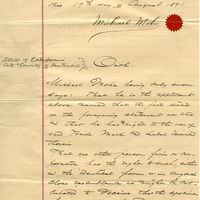 this 19th day of August 1891.
Michael Mohr
State of California
City & County of San Francisco } Oath.
Michael Mohr being duly sworn
says: That he is the applicant
above named, that the facts stated
in the foregoing statement are true
and that he has right to the use of
said Trade Mark and Label
therein.
That no other person firm or cor-
poration has the right to such, either
in the identical form or in any such
close resemblance as might be cal-
culated to deceive